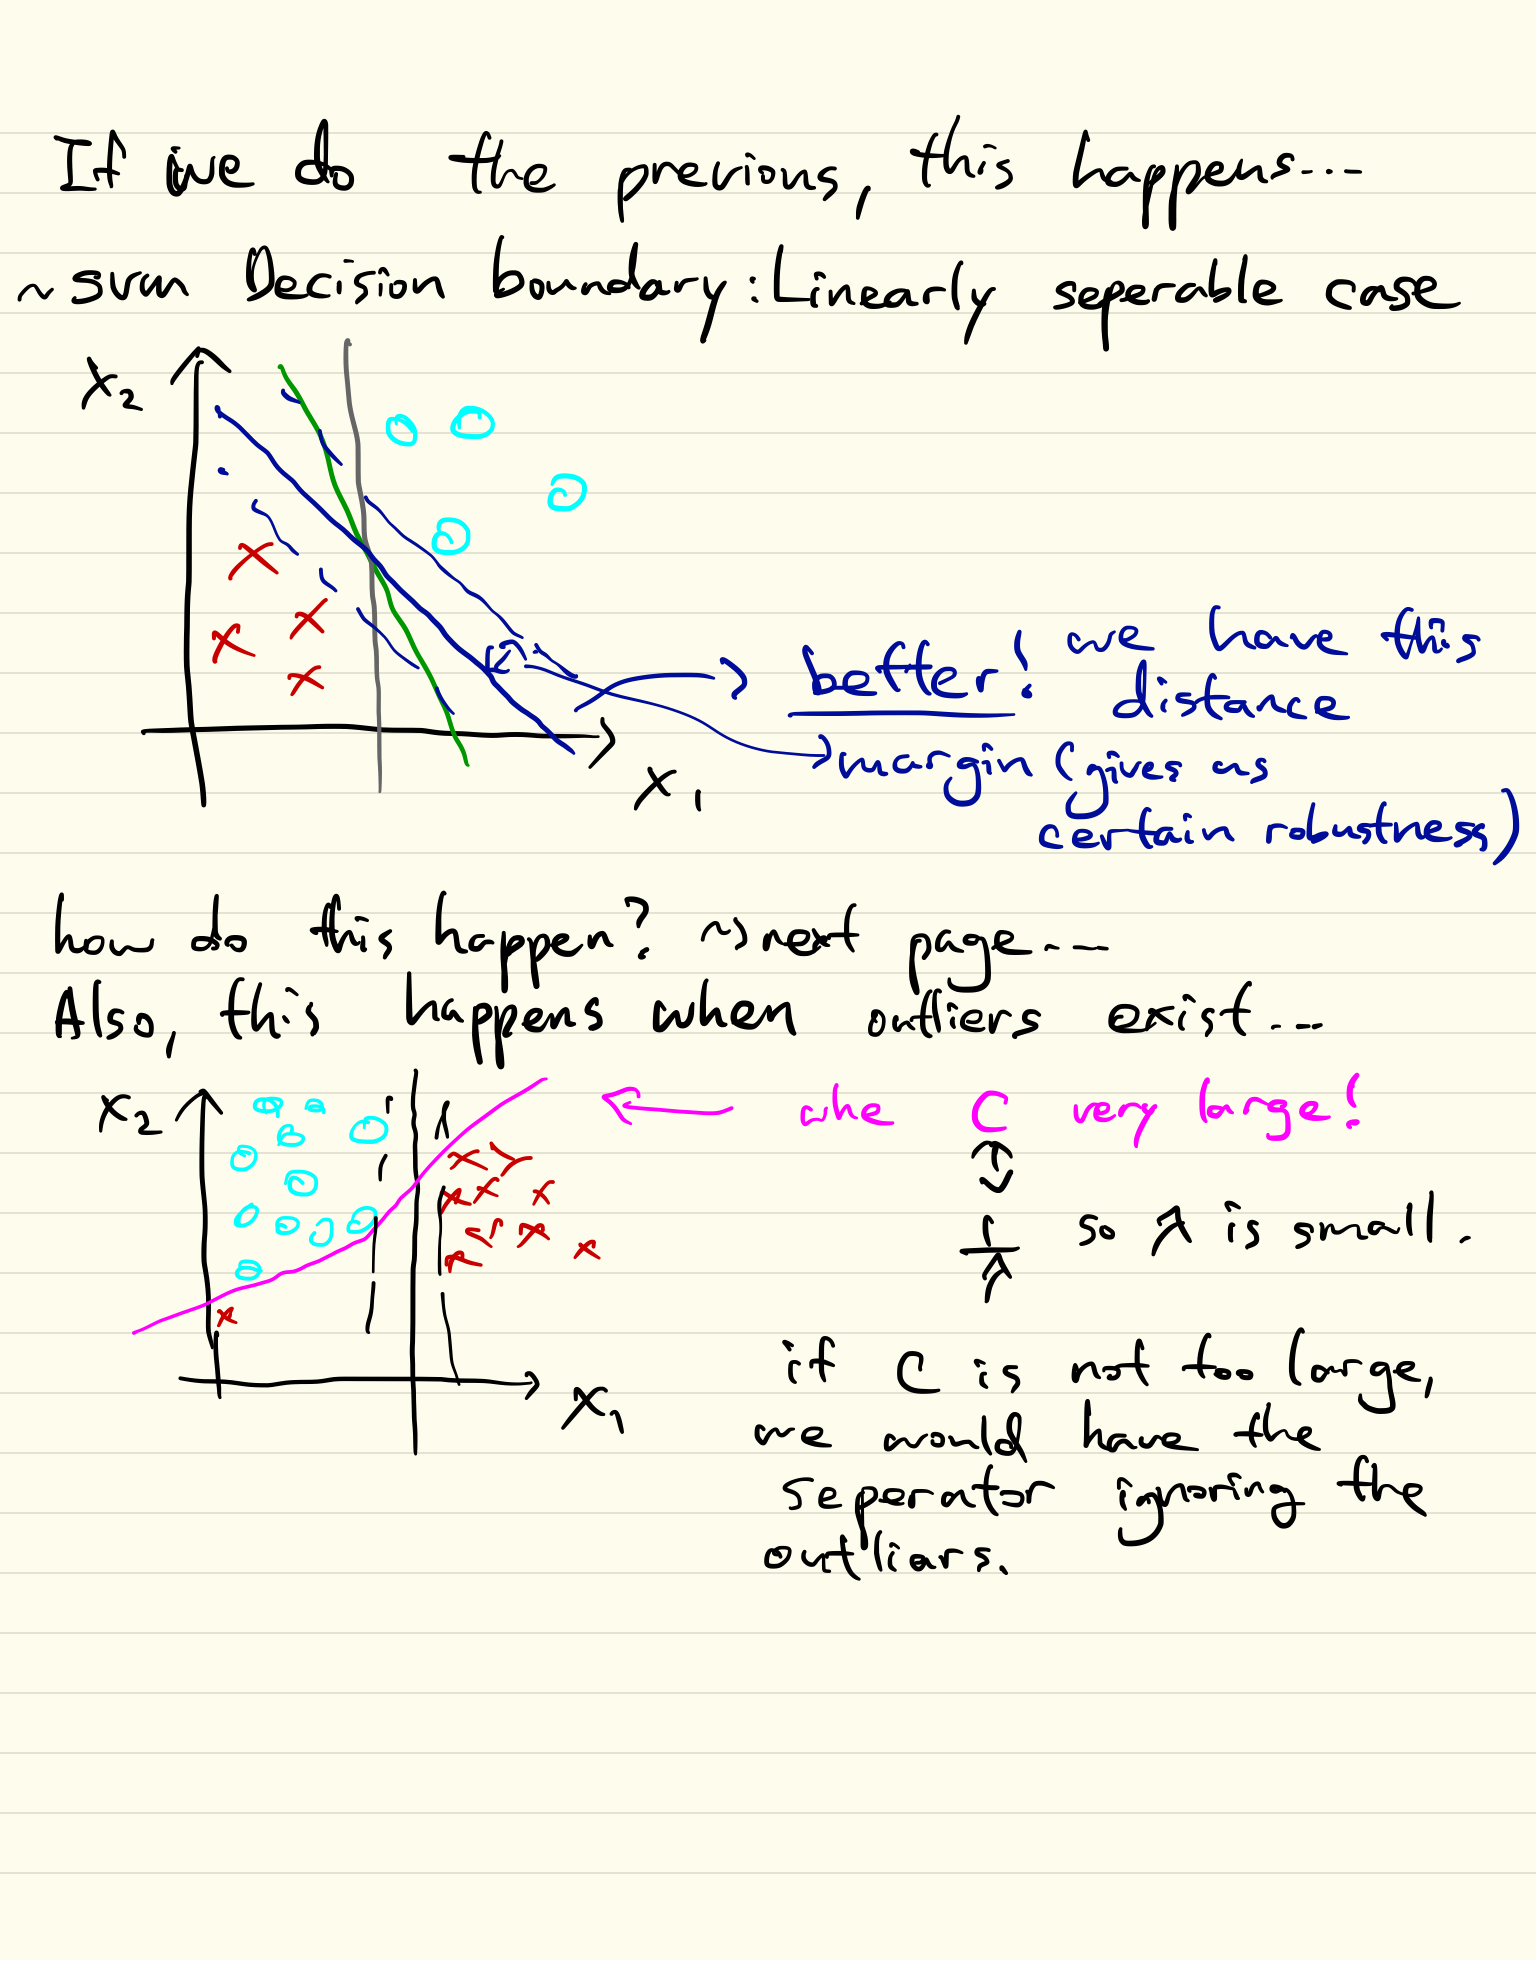 If we do the previous, this happens...
~ svm Decision boundary: Linearly seperable case
x2
better! we have this
distance
margin (gives us
certain robustness)
x1
how do this happen? ~> next page...
Also, this happens when outliers exist...
x2
whe C very large!
↕
1/λ so λ is small.
x1
if C is not too large,
we would have the
seperator ignoring the
outliars.